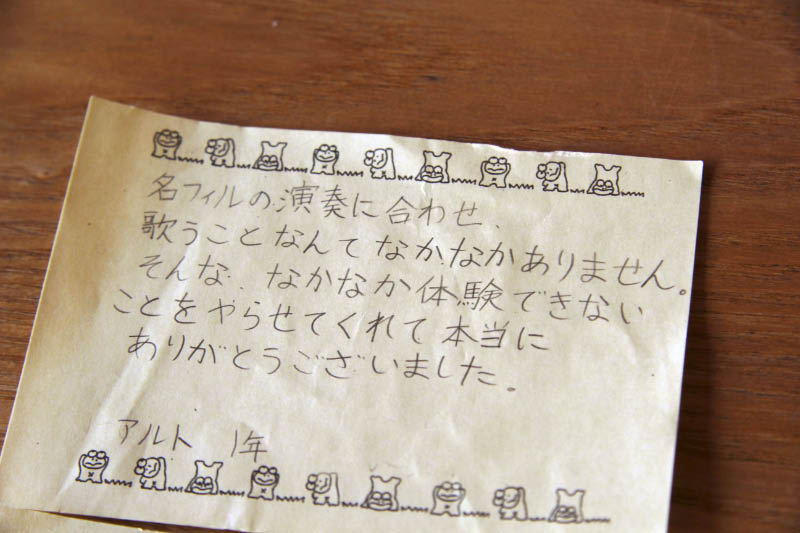 名フィルの演奏に合わせ、
歌うことなんてなかなかありません。
そんな、なかなか体験できない
ことをやらせてくれて本当に
ありがとうございました。
アルト 1年